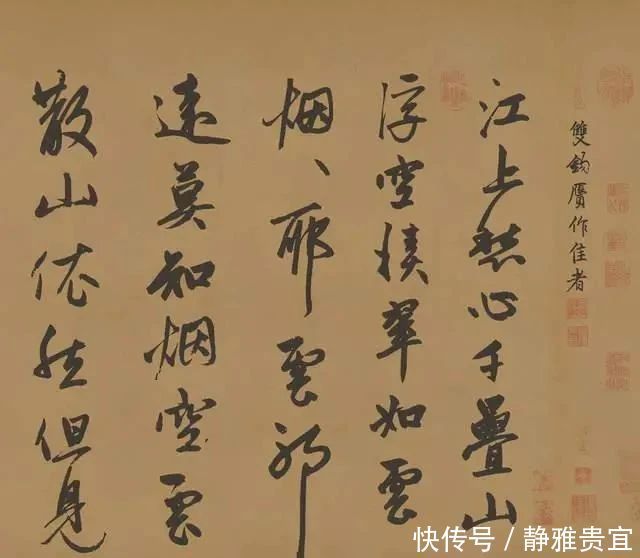 雙鈎贋作佳者
江上愁心千疊山
浮空積翠如雲
烟、耶雲耶
遠莫知烟空雲
散山依然但見
快传号 / 静雅贵宜